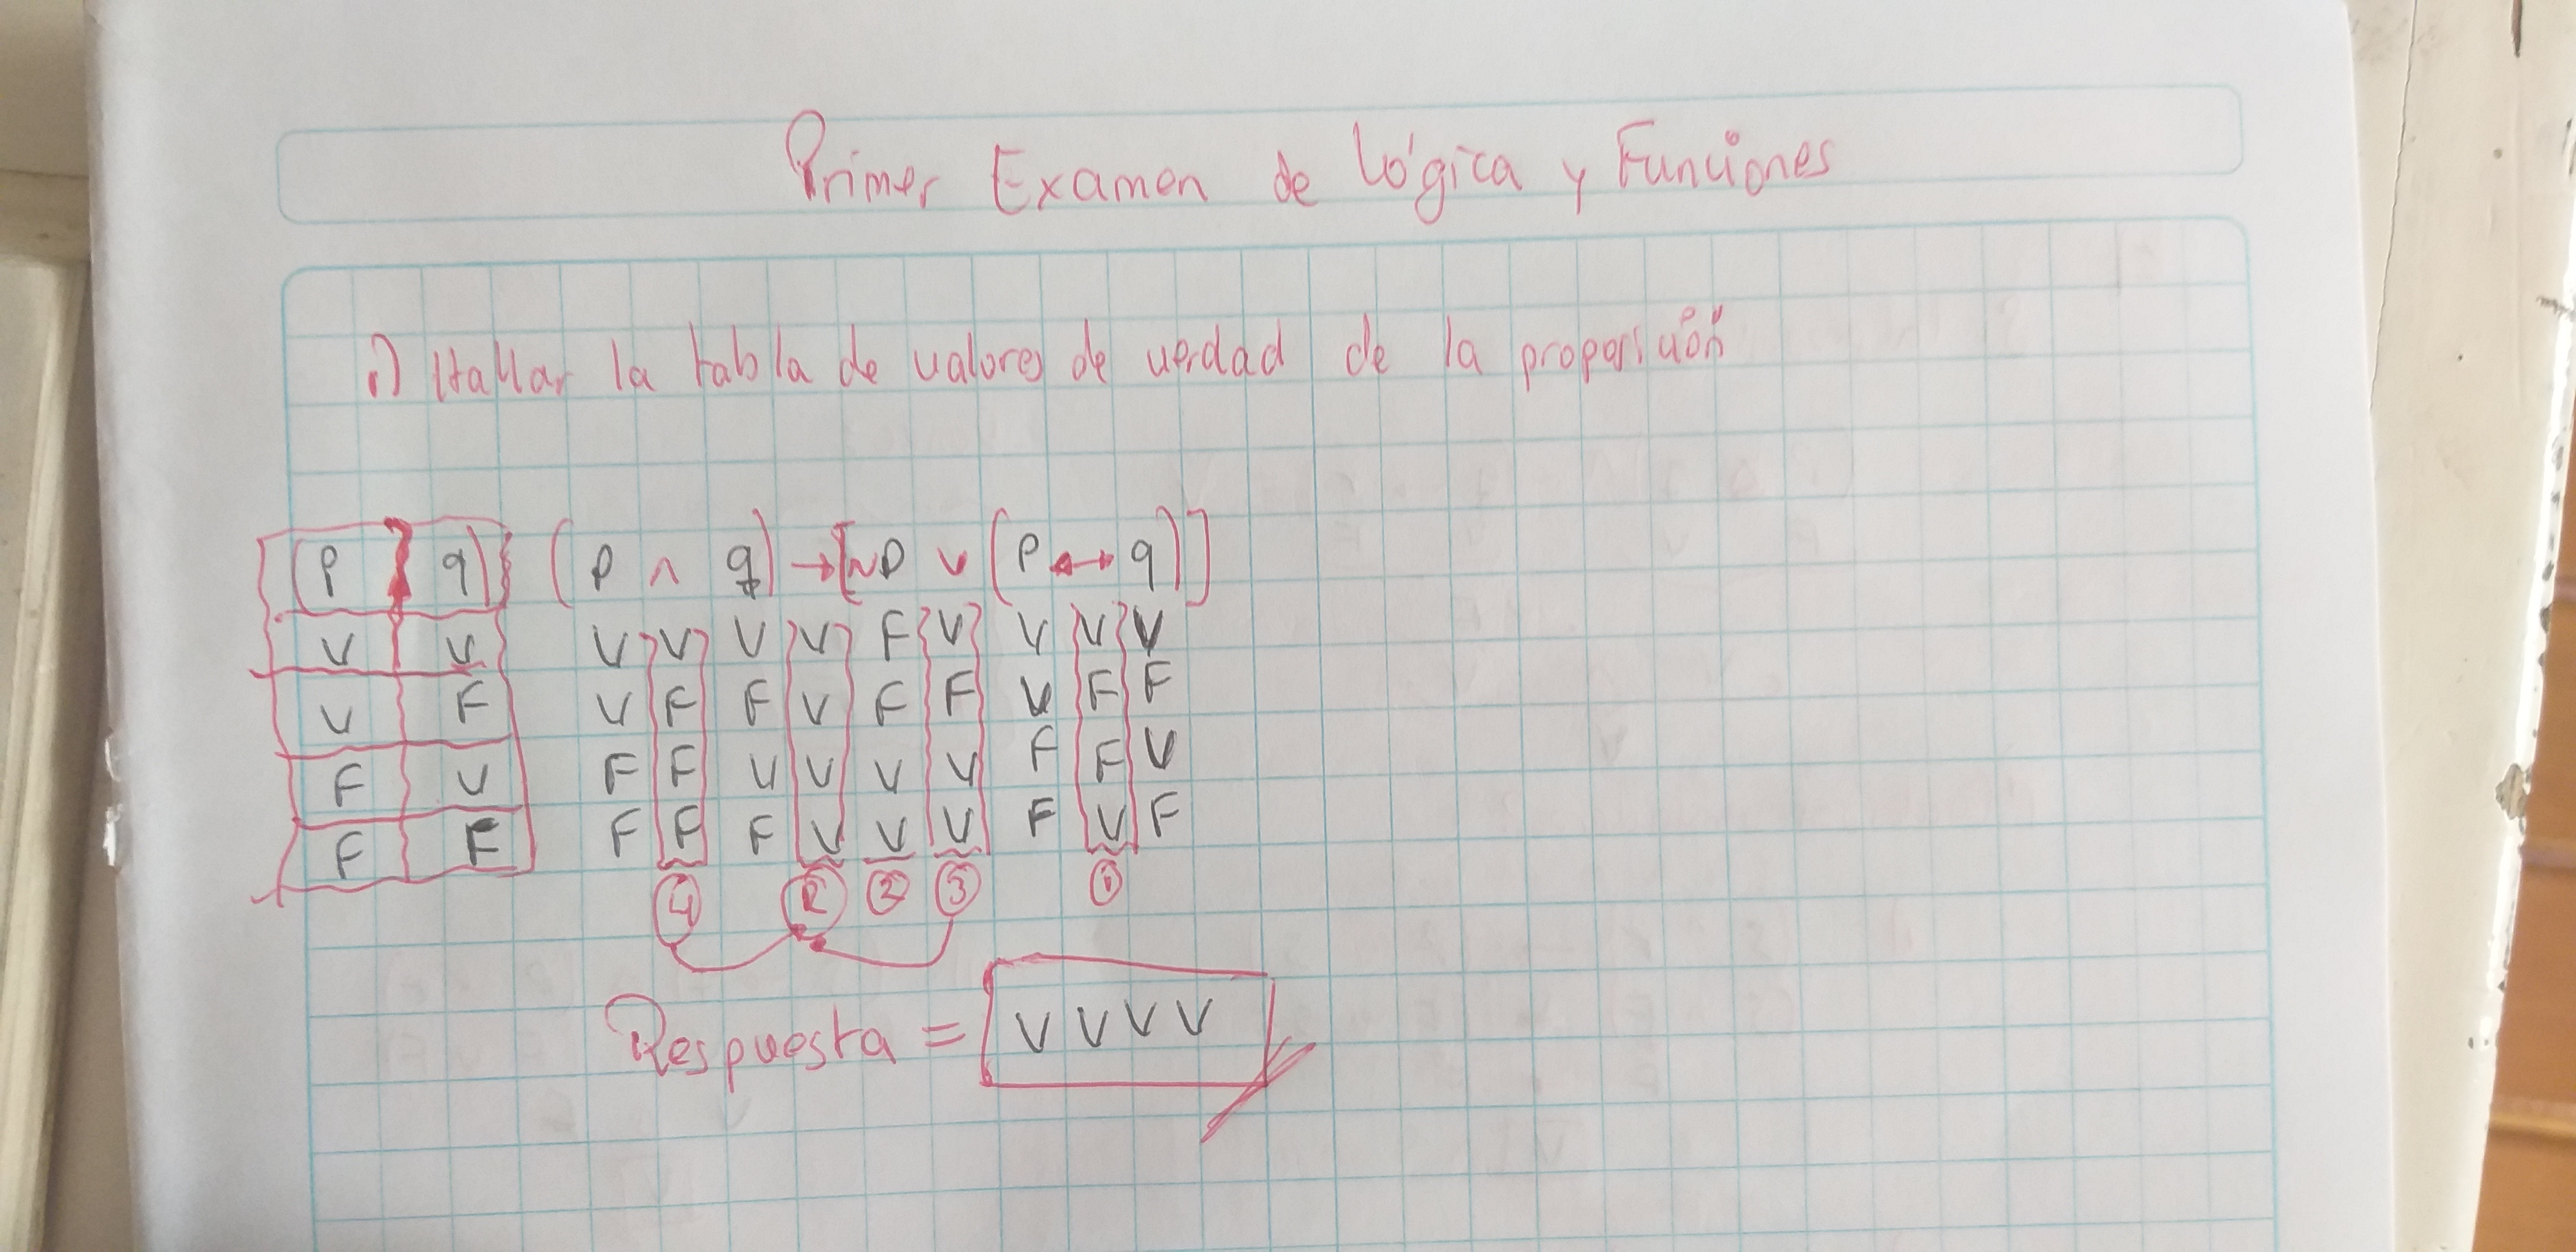 Primer Examen de Lógica y Funciones
1) Hallar la tabla de valores de verdad de la proposición
(p q) (p ∧ q) → [~p ∨ (p ↔ q)]
V V V V V V F V V V V
V F V F F V F F V F F
F V F F V V V V F F V
F F F F F V V V F V F
④ ② ③ ①
Respuesta = V V V V